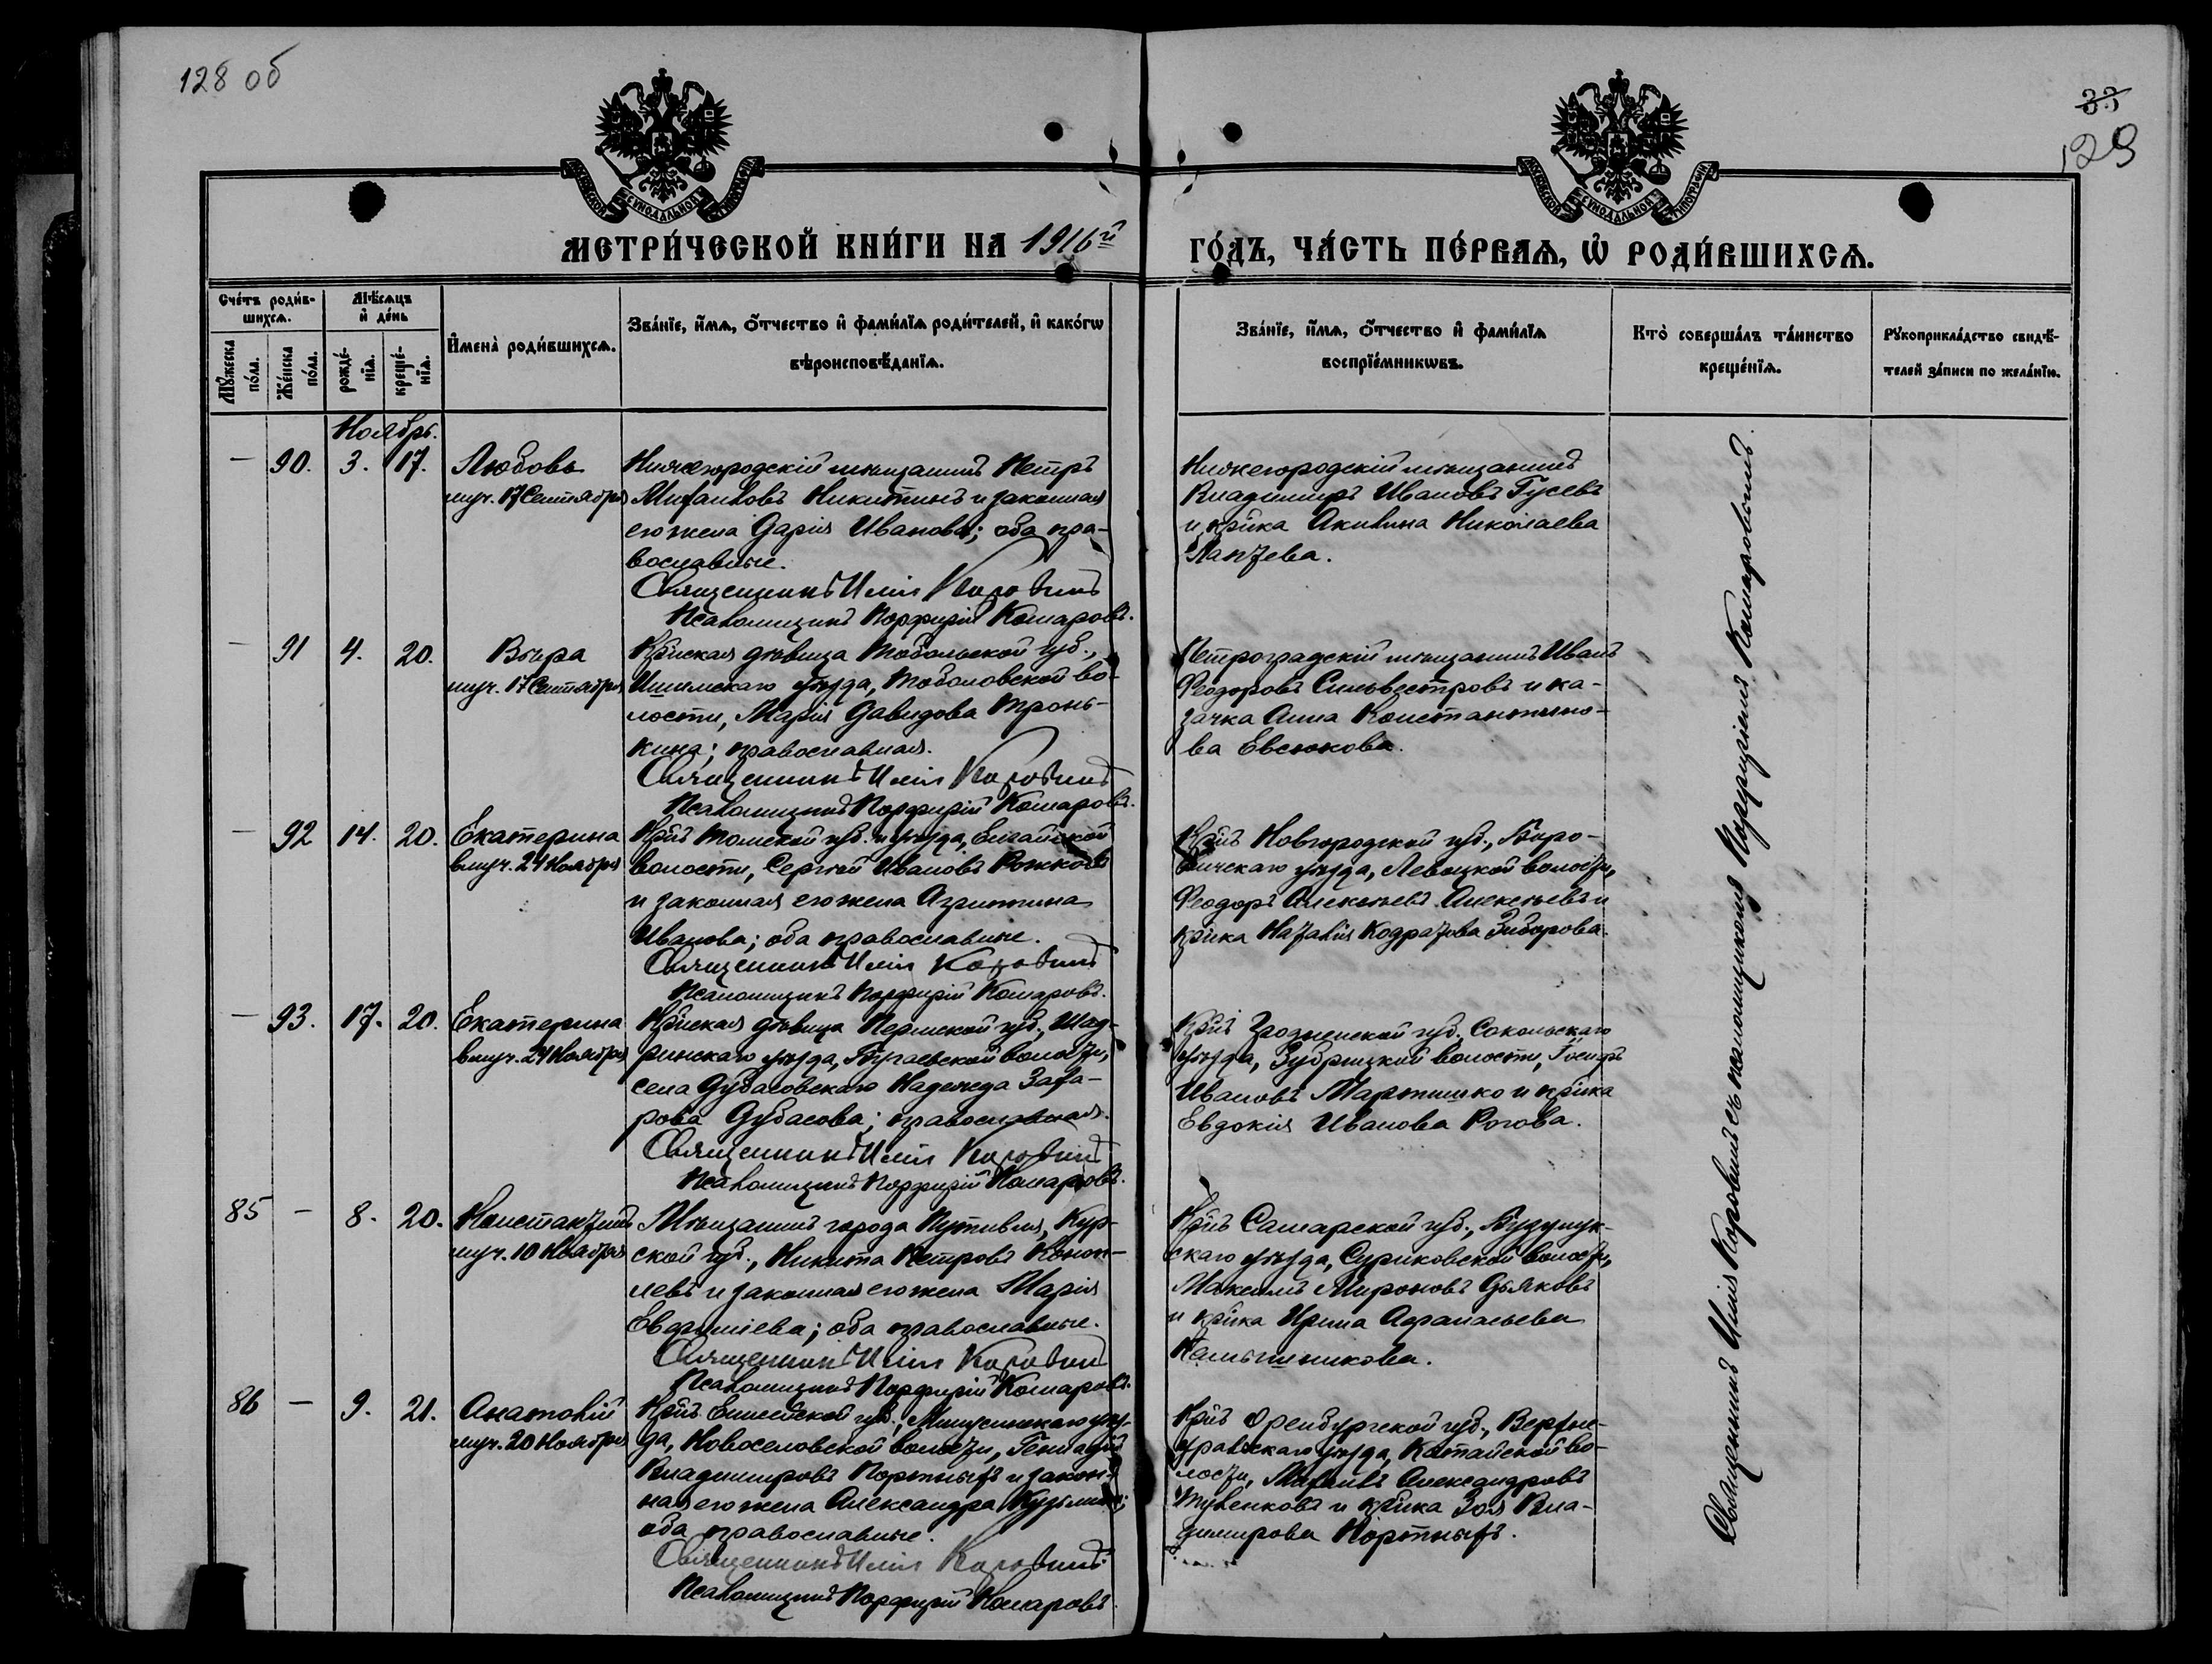 128 об
33
129
МОСКОВСКОЙ СѴНОДАЛЬНОЙ ТИПОГРАФІИ
МОСКОВСКОЙ СѴНОДАЛЬНОЙ ТИПОГРАФІИ
МЕТРИ́ЧЕСКОЙ КНИ́ГИ НА 1916й
ГО́ДЪ, ЧА́СТЬ ПЕ́РВАѦ, Ѡ РОДИ́ВШИХСѦ.
Сче́тъ роди́в-
шихсѧ.
Мѣ́сѧцъ
и҆ де́нь
Мꙋ́жеска
по́ла.
Же́нска
по́ла.
рожде́-
нїѧ.
креще́-
нїѧ.
И҆мена̀ роди́вшихсѧ.
Зва́нїе, и҆́мѧ, ѻ҆́тчество и҆ фами́лїѧ роди́телей, и҆ како́гѡ
вѣроисповѣ́данїѧ.
Зва́нїе, и҆́мѧ, ѻ҆́тчество и҆ фами́лїѧ
воспрїе́мникѡвъ.
Кто̀ соверша́лъ та́инство
креще́нїѧ.
Рꙋкоприкла́дство свидѣ́-
телей за́писи по жела́нїю.
Ноябрь.
— 90. 3. 17. Любовь
муч. 17 Сентября
Нижегородскій мѣщанинъ Петръ
Михаиловъ Никитинъ и законная
его жена Дарія Иванова; оба пра-
вославные.
Священникъ Илія Коровинъ
Псаломщикъ Порфирій Комаровъ.
Нижегородскій мѣщанинъ
Владиміръ Ивановъ Гусевъ
и кр҃ка Акилина Николаева
Лаптева.
— 91 4. 20. Вѣра
муч. 17 Сентября
Кр҃нская дѣвица Тобольской губ.,
Ишимскаго уѣзда, Тоболовской во-
лости, Марія Давидова Тронь-
кина; православная.
Священникъ Илія Коровинъ
Псаломщикъ Порфирій Комаровъ.
Петроградскій мѣщанинъ Иванъ
Ѳеодоровъ Сильвестровъ и ка-
зачка Анна Константино-
ва Евсюкова.
— 92 14. 20. Екатерина
вмуч. 24 Ноября
Кр҃нъ Томской губ. и уѣзда, Елгайской
волости, Сергѣй Ивановъ Рожковъ
и законная его жена Агриппина
Иванова; оба православные.
Священникъ Илія Коровинъ
Псаломщикъ Порфирій Комаровъ.
Кр҃нъ Новгородской губ., Боро-
вичскаго уѣзда, Левоцкой волости,
Ѳеодоръ Алексѣевъ Алексѣевъ и
кр҃ка Наталія Кодратова Зиборова.
— 93. 17. 20. Екатерина
вмуч. 24 Ноября
Кр҃нская дѣвица Пермской губ., Шад-
ринскаго уѣзда, Бугаевской волости,
села Дубасовскаго Надежда Заха-
рова Дубасова; православная.
Священникъ Илія Коровинъ
Псаломщикъ Порфирій Комаровъ.
Кр҃нъ Гродненской губ., Сокольскаго
уѣзда, Зубрицкой волости, Іосифъ
Ивановъ Мартишко и кр҃ка
Евдокія Иванова Рогова.
85 — 8. 20. Константинъ
муч. 10 Ноября
Мѣщанинъ города Путивля, Кур-
ской губ., Никита Петровъ Коноп-
левъ и законная его жена Марія
Евфиміева; оба православные.
Священникъ Илія Коровинъ
Псаломщикъ Порфирій Комаровъ.
Кр҃нъ Самарской губ., Бузулук-
скаго уѣзда, Суриковской волости,
Максимъ Мироновъ Дьяковъ
и кр҃ка Ирина Аѳанасьева
Камышникова.
86 — 9. 21. Анатолій
муч. 20 Ноября
Кр҃нъ Енисейской губ., Минусинскаго уѣз-
да, Новоселовской волости, Геннадій
Владиміровъ Портныхъ и закон-
ная его жена Александра Кузьмина;
оба православные.
Священникъ Илія Коровинъ
Псаломщикъ Порфирій Комаровъ.
Кр҃нъ Оренбургской губ., Верхне-
уральскаго уѣзда, Катайской во-
лости, Михаилъ Александровъ
Тувенковъ и кр҃ка Зоя Вла-
димирова Портныхъ.
Священникъ Илія Коровинъ съ псаломщикомъ Порфиріемъ Комаровымъ.